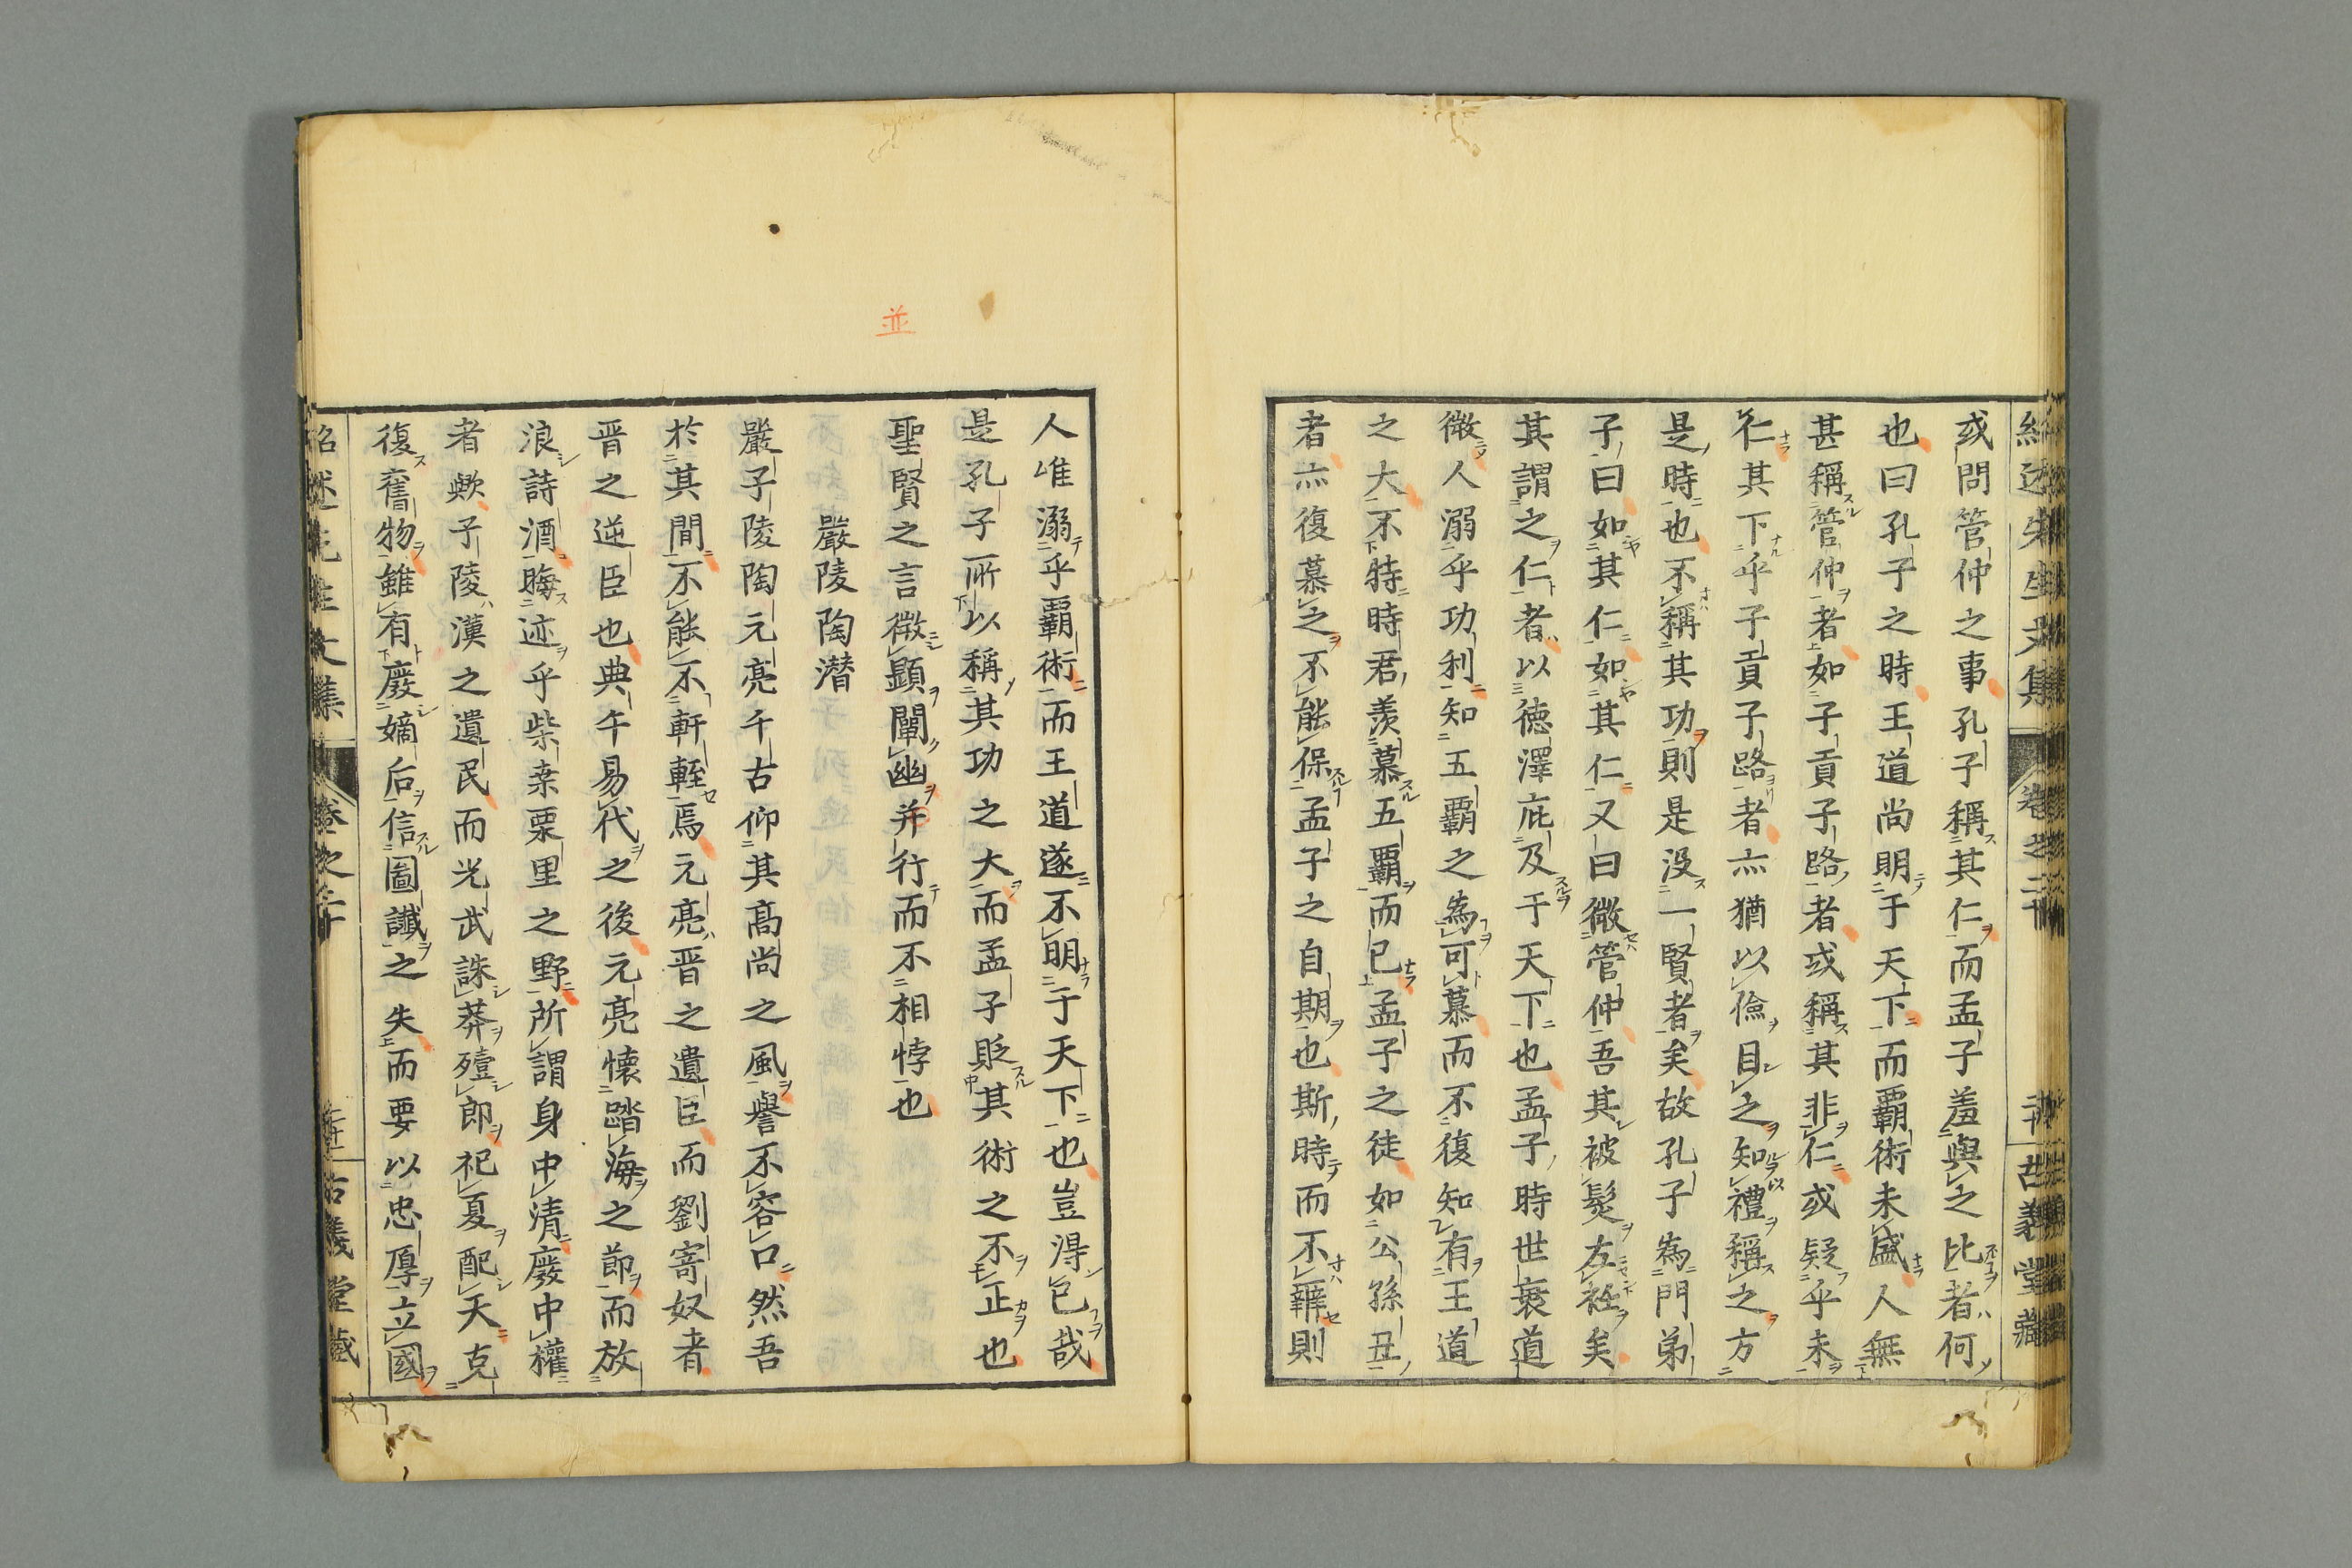 或問管仲之事孔子稱其仁而孟子羞與之比者何
也曰孔子之時王道尚明于天下而覇術未盛人無
甚稱管仲者如子貢子路者或稱其非仁或疑乎未
仁其下乎子貢子路者亦猶以儉目之知禮稱之方
是時也不稱其功則是没一賢者矣故孔子為門弟
子曰如其仁如其仁又曰微管仲吾其被髮左衽矣
其謂之仁者以徳澤庇及于天下也孟子時世衰道
微人溺乎功利知五覇之為可慕而不復知有王道
之大不特時君羨慕五覇而已孟子之徒如公孫丑
者亦復慕之不能保孟子之自期也斯時而不辨則
人唯溺乎覇術而王道遂不明于天下也豈得已哉
是孔子所以稱其功之大而孟子貶其術之不正也
並
聖賢之言微顕闡幽并行而不相悖也
嚴陵陶潜
嚴子陵陶元亮千古仰其髙尚之風譽不容口然吾
於其間不能不軒輊焉元亮晋之遺臣而劉寄奴者
晋之逆臣也典午易代之後元亮懐踏海之節而放
浪詩酒晦迹乎柴桒栗里之野所謂身中清廢中權
者歟子陵漢之遺民而光武誅莽殪郎祀夏配天克
復舊物雖有廢嫡后信圖讖之失而要以忠厚立國
紹述先生文集
卷之二十
古義堂藏